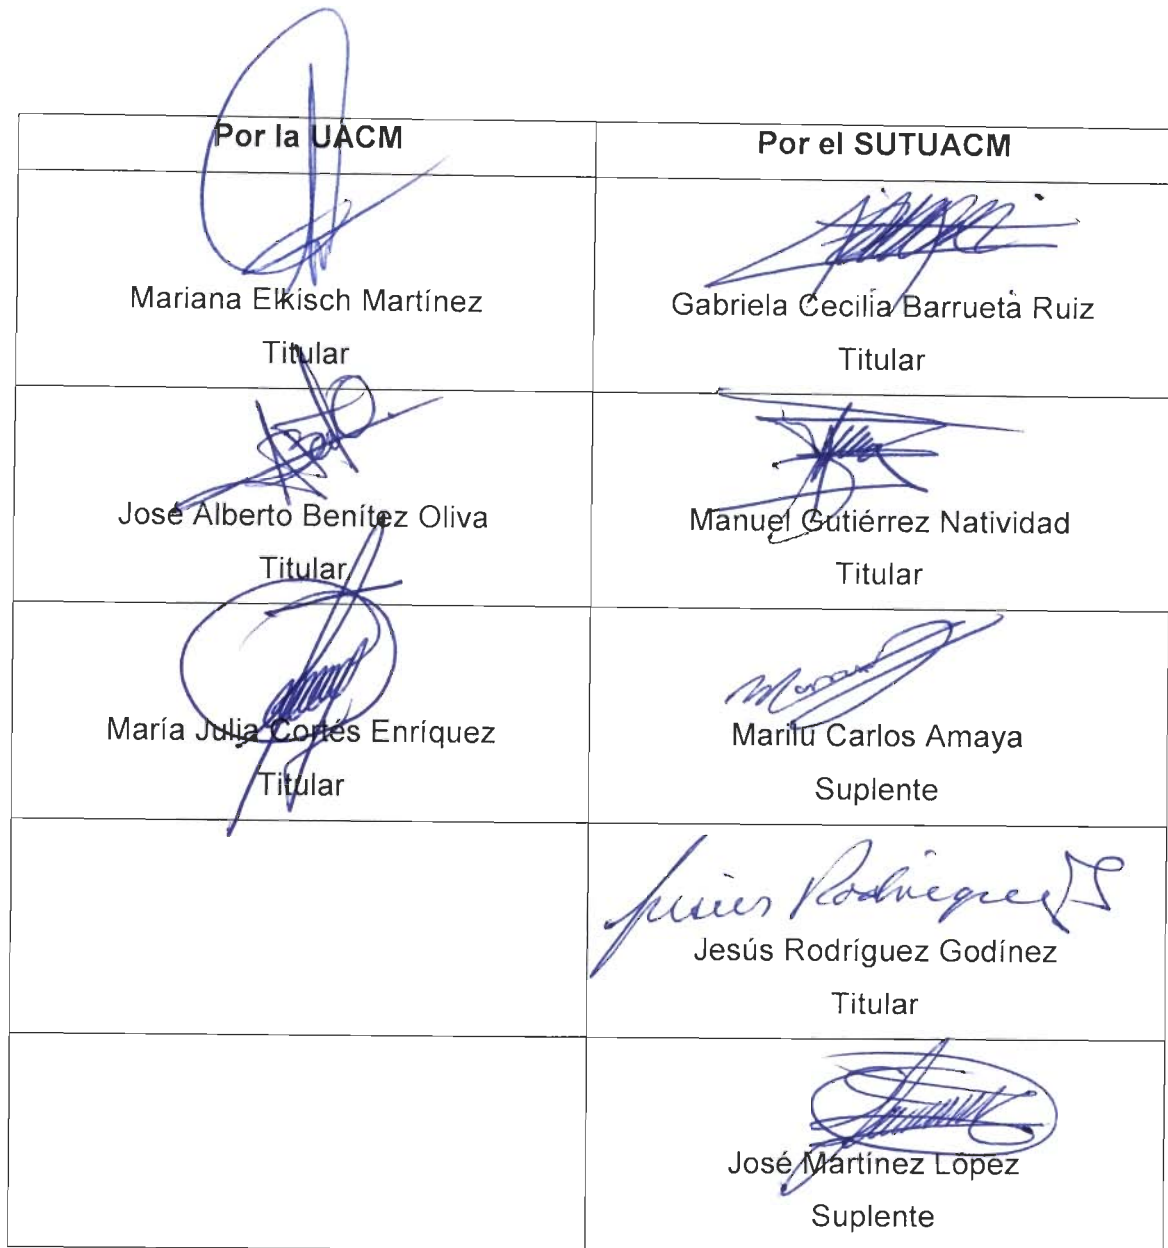 Por la UACM
Por el SUTUACM
Mariana Elkisch Martínez
Titular
Gabriela Cecilia Barrueta Ruiz
Titular
José Alberto Benítez Oliva
Titular
Manuel Gutiérrez Natividad
Titular
María Julia Cortés Enríquez
Titular
Marilú Carlos Amaya
Suplente
Jesús Rodríguez
Jesús Rodríguez Godínez
Titular
José Martínez López
Suplente